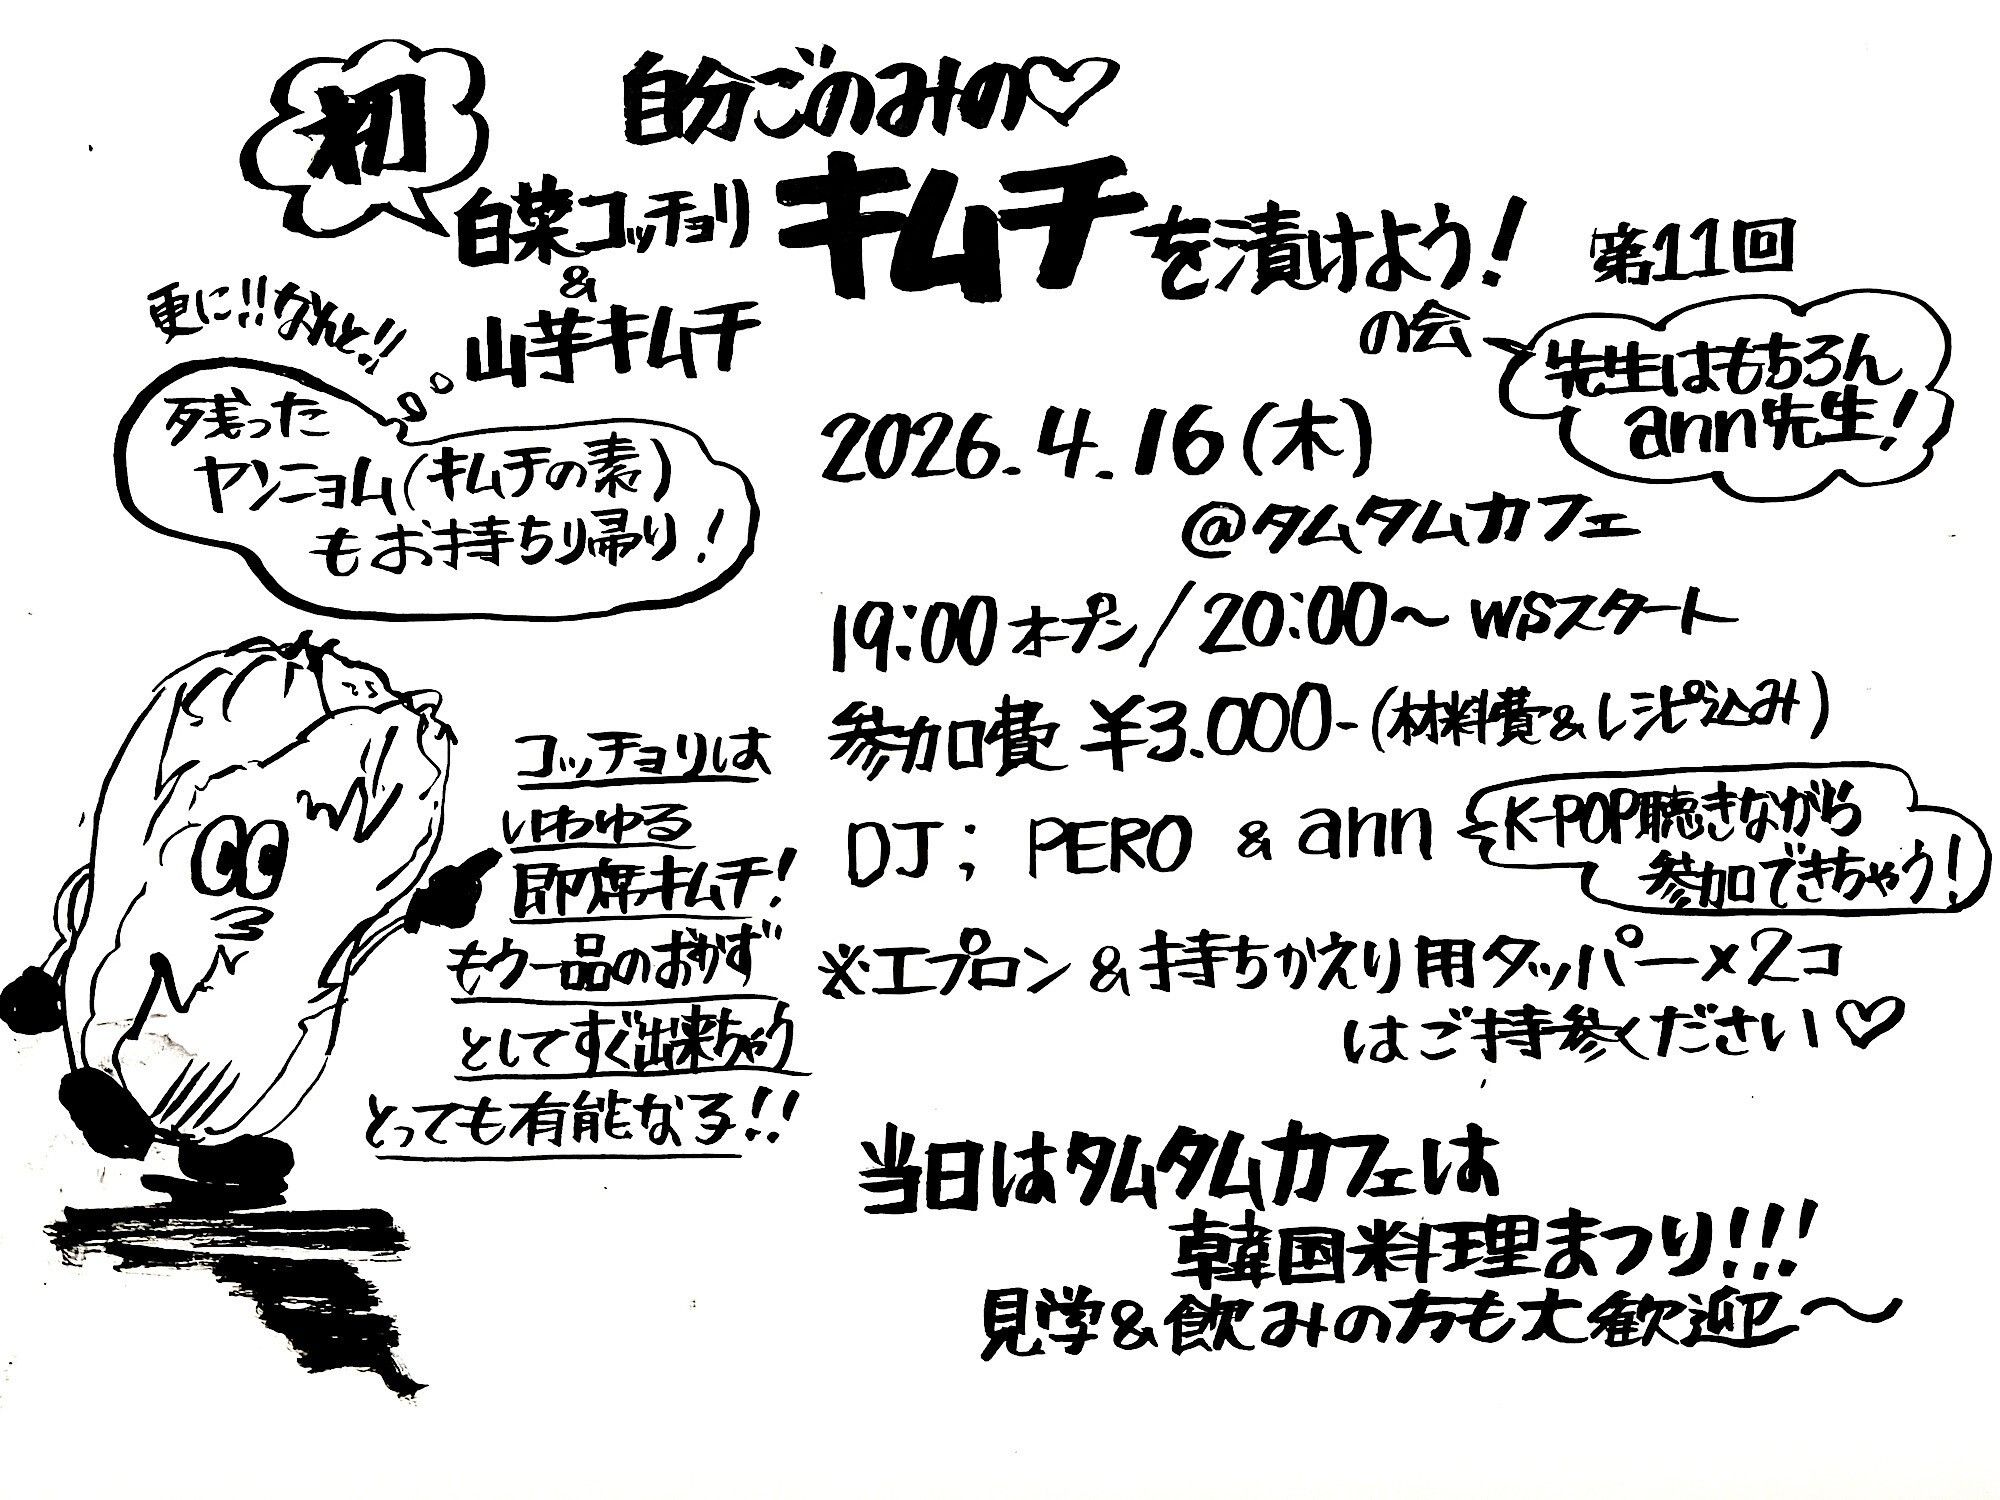 初
自分ごのみの♡
白菜コッチョリ
&
山芋キムチ
キムチを漬けよう！
の会
第11回
先生はもちろん
ann先生！
更に!!なんと!!
残った
ヤンニョム(キムチの素)
もお持ち帰り！
2026.4.16(木)
@タムタムカフェ
19:00オープン/20:00〜WSスタート
参加費 ¥3.000-(材料費&レシピ込み)
DJ; PERO & ann
K-POP聴きながら
参加できちゃう！
※エプロン&持ちかえり用タッパー×2コ
はご持参ください♡
コッチョリは
いわゆる
即席キムチ！
もう一品のおかず
としてすぐ出来ちゃう
とっても有能な子!!
当日はタムタムカフェは
韓国料理まつり!!!
見学&飲みの方も大歓迎〜